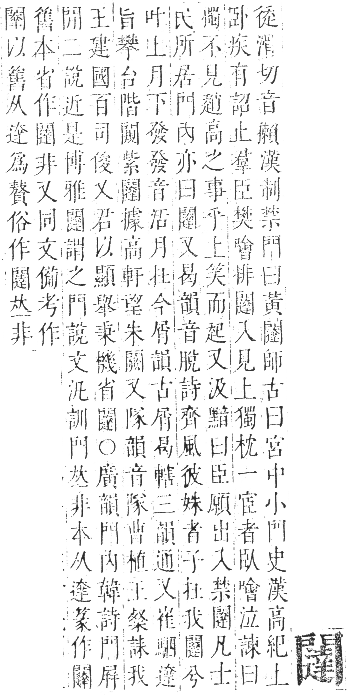 闥
從滑切音獺漢制禁門曰黃闥師古曰宮中小門史漢高紀上
臥疾有詔止羣臣樊噲排闥入見上獨枕一宦者臥噲泣諫曰
獨不見趙高之事乎上笑而起又汲黯曰臣願出入禁闥凡士
民所居門內亦曰闥又曷韻音脫詩齊風彼姝者子在我闥兮
叶上月下發發音活月在今屑韻古屑曷轄三韻通又崔駰達
旨攀台階闚紫闥據高軒望朱闕又隊韻音隊曹植王粲誄我
王建國百司俊乂君以顯舉秉機省闥○廣韻門內韓詩門屏
閒二說近是博雅闥謂之門說文汎訓門𠀤非本从達篆作闥
舊本省作闥非又同文備考作
闥以舊从達為贅俗作闥𠀤非